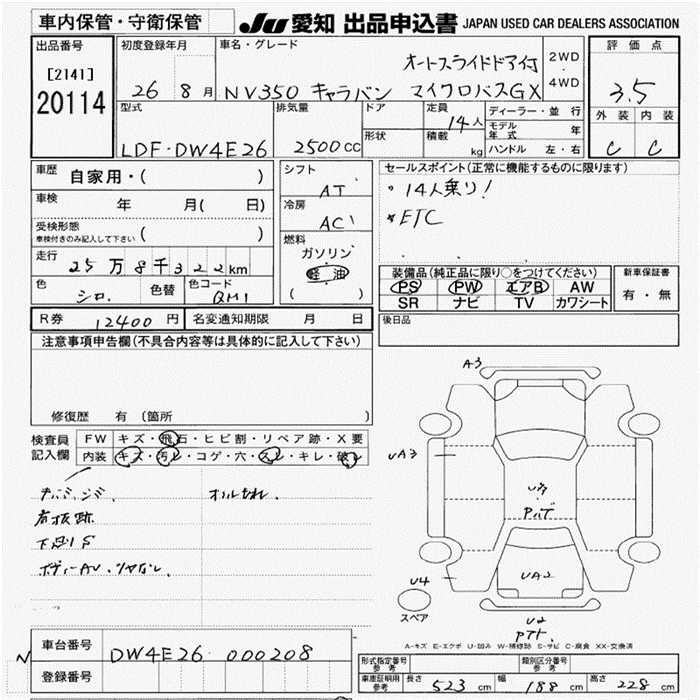 車内保管・守衛保管
JU 愛知 出品申込書 JAPAN USED CAR DEALERS ASSOCIATION
出品番号
[2141]
20114
初度登録年月
26 8 月
車名・グレード
オートスライドドア付
NV350 キャラバン マイクロバスGX
2WD
・
4WD
評価点
3.5
外装 内装
C C
型式
LDF・DW4E26
排気量
2500 CC
ドア
形状
定員
14 人
積載
kg
ディーラー・並行
モデル年式 年
ハンドル 左・右
車歴
自家用・( )
車検 年 月( 日)
受検形態
車検付きのみ記入して下さい ( )
走行
25万8千322km
色
シロ.
色替
色コード
QM1
シフト
AT
冷房
AC
燃料
ガソリン
軽油
( )
セールスポイント(正常に機能するものに限ります)
・14人乗り!
*ETC
装備品(純正品に限り○をつけてください)
PS PW エアB AW
SR ナビ TV カワシート
新車保証書
有・無
R券 12400 円
名変通知期限 月 日
後日品
注意事項申告欄(不具合内容等は具体的に記入して下さい)
修復歴 有 (箇所 )
検査員
記入欄
FW キズ・飛石・ヒビ割・リペア跡・X要
内装 キズ・汚レ・コゲ・穴・スレ・キレ・破レ
看板跡
A3
UA3
PハT
UA2
U4
スペア
U2
A-キズ E-エクボ U-凹み W-補修跡 S-サビ C-腐食 XX-交換済
車台番号 DW4E26-000208
登録番号
N
形式指定番号
参考
類別区分番号
参考
車庫証明用
参考
長さ 523 cm 幅 188 cm 高さ 228 cm